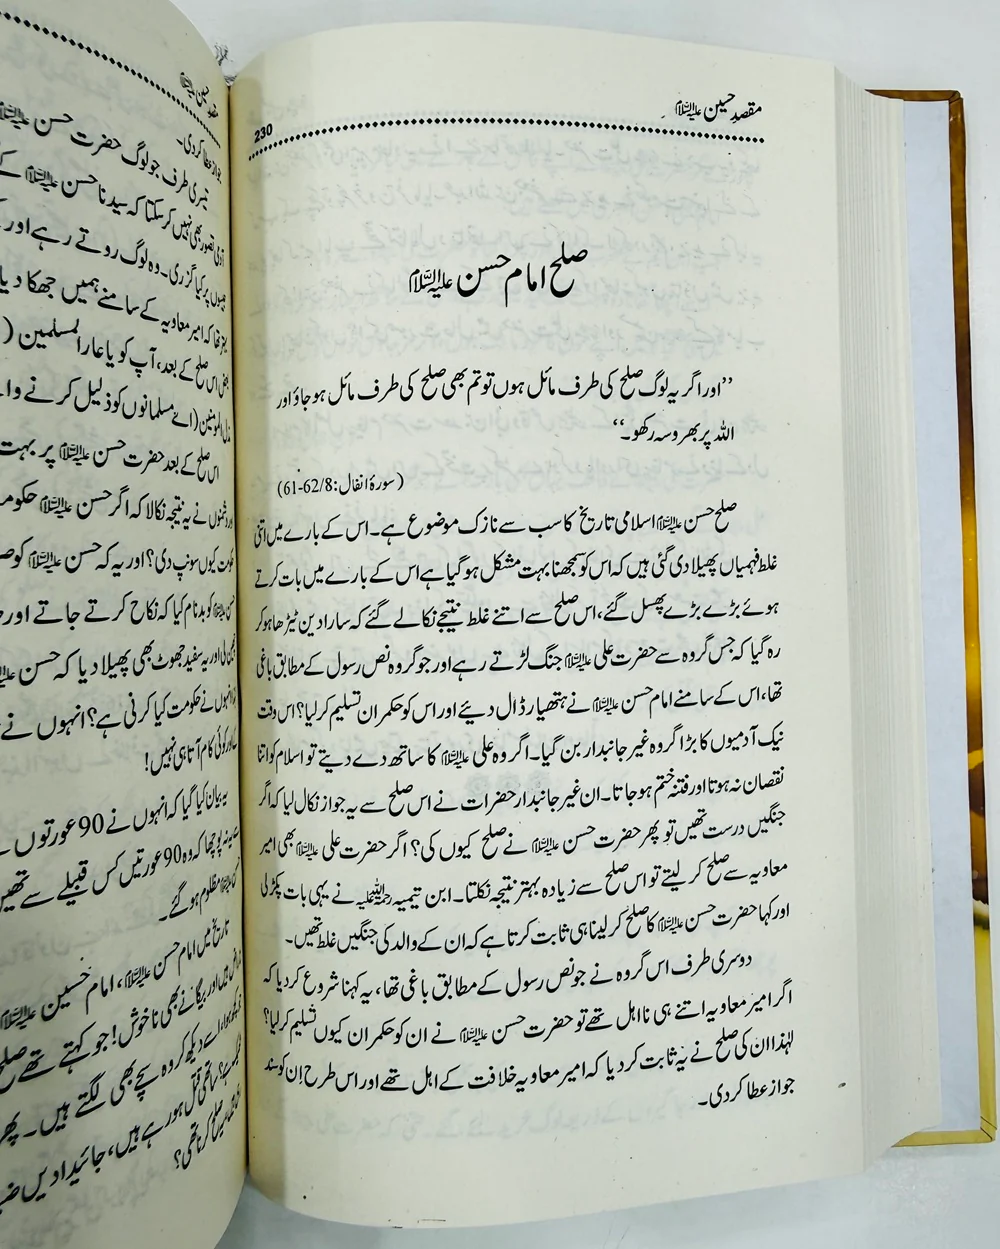 مقصدِ حسین علیہ السلام
230
صلح امام حسن علیہ السلام
’’اور اگر یہ لوگ صلح کی طرف مائل ہوں تو تم بھی صلح کی طرف مائل ہو جاؤ اور
اللہ پر بھروسہ رکھو۔‘‘
(سورۂ انفال:8/62-61)
صلح حسن علیہ السلام اسلامی تاریخ کا سب سے نازک موضوع ہے۔ اس کے بارے میں اتنی
غلط فہمیاں پھیلا دی گئی ہیں کہ اس کو سمجھنا بہت مشکل ہو گیا ہے اس کے بارے میں بات کرتے
ہوئے بڑے بڑے پھسل گئے، اس صلح سے اتنے غلط نتیجے نکالے گئے کہ سارا دین ٹیڑھا ہو کر
رہ گیا کہ جس گروہ سے حضرت علی علیہ السلام جنگ لڑتے رہے اور جو گروہ نص رسول کے مطابق باغی
تھا، اس کے سامنے امام حسن علیہ السلام نے ہتھیار ڈال دیئے اور اس کو حکمران تسلیم کر لیا؟ اس وقت
نیک آدمیوں کا بڑا گروہ غیر جانبدار بن گیا۔ اگر وہ علی علیہ السلام کا ساتھ دے دیتے تو اسلام کو اتنا
نقصان نہ ہوتا اور فتنہ ختم ہو جاتا۔ ان غیر جانبدار حضرات نے اس صلح سے یہ جواز نکال لیا کہ اگر
جنگیں درست تھیں تو پھر حضرت حسن علیہ السلام نے صلح کیوں کی؟ اگر حضرت علی علیہ السلام بھی امیر
معاویہ سے صلح کر لیتے تو اس صلح سے زیادہ بہتر نتیجہ نکلتا۔ ابن تیمیہ رحمۃ اللہ علیہ نے یہی بات پکڑ لی
اور کہا حضرت حسن علیہ السلام کا صلح کر لینا ہی ثابت کرتا ہے کہ ان کے والد کی جنگیں غلط تھیں۔
دوسری طرف اس گروہ نے جو نص رسول کے مطابق باغی تھا، یہ کہنا شروع کر دیا کہ
اگر امیر معاویہ اتنے ہی نا اہل تھے تو حضرت حسن علیہ السلام نے ان کو حکمران کیوں تسلیم کر لیا؟
لہٰذا ان کی صلح نے یہ ثابت کر دیا کہ امیر معاویہ خلافت کے اہل تھے اور اس طرح اِن کو سند
جواز عطا کر دی۔
مقصدِ حسین علیہ السلام
جواز عطا کر دی۔
تیسری طرف جو لوگ حضرت حسن علیہ السلام
آدمی تصور بھی نہیں کر سکتا کہ سیدنا حسن علیہ السلام کے
پر کیا گزری۔ وہ لوگ روتے رہے اور
کہ امیر معاویہ کے سامنے ہمیں جھکا دیا
اس صلح کے بعد، آپ کو یا عار المسلمین (
(اے مسلمانوں کو ذلیل کرنے وا
اس صلح کے بعد حضرت حسن علیہ السلام پر بہت
نے یہ نتیجہ نکالا کہ اگر حسن علیہ السلام حکومت
کیوں سونپ دی؟ اور یہ کہ حسن علیہ السلام کو
کو بدنام کیا کہ نکاح کرتے جاتے اور
اور یہ سفید جھوٹ بھی پھیلا دیا کہ حسن
انہوں نے حکومت کیا کرنی ہے؟ انہوں نے
اور کوئی کام آتا ہی نہیں!
یہ بیان کیا گیا کہ انہوں نے 90 عورتوں
پوچھا کہ وہ 90 عورتیں کس قبیلے سے تھیں
مظلوم ہو گئے۔
تاریخ میں امام حسن علیہ السلام، امام حسین علیہ السلام
اور بیگانے بھی ناخوش! جو کہتے تھے صلح
دیکھ کر وہ سچے بھی لگتے ہیں۔ پھر
قتل ہو رہے ہیں، جائیدادیں
صلح کرنا تھی؟